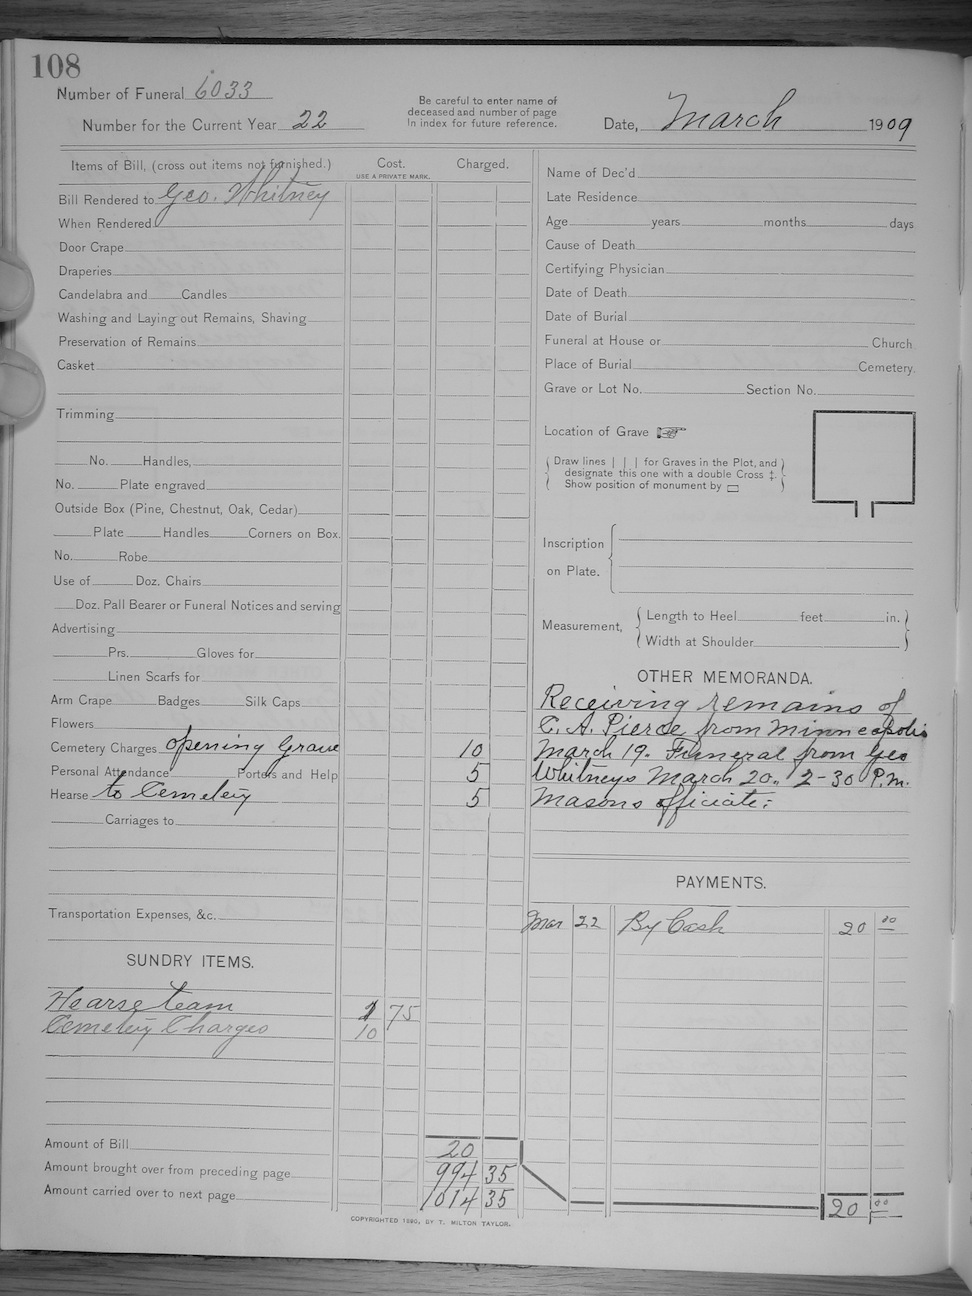 108
Number of Funeral 6033
Number for the Current Year 22
Be careful to enter name of
deceased and number of page
in index for future reference.
Date, March 1909
Items of Bill, (cross out items not furnished.) Cost. Charged.
USE A PRIVATE MARK.
Bill Rendered to Geo. Whitney
When Rendered
Door Crape
Draperies
Candelabra and Candles
Washing and Laying out Remains, Shaving
Preservation of Remains
Casket
Trimming
No. Handles,
No. Plate engraved
Outside Box (Pine, Chestnut, Oak, Cedar)
Plate Handles Corners on Box.
No. Robe
Use of Doz. Chairs
Doz. Pall Bearer or Funeral Notices and serving
Advertising
Prs. Gloves for
Linen Scarfs for
Arm Crape Badges Silk Caps
Flowers
Cemetery Charges opening Grave 10
Personal Attendance Porters and Help 5
Hearse to Cemetery 5
Carriages to
Transportation Expenses, &c.
SUNDRY ITEMS.
Hearse team 75
Cemetery Charges 10
Amount of Bill 20
Amount brought over from preceding page 994 35
Amount carried over to next page 1014 35
COPYRIGHTED 1890, BY T. MILTON TAYLOR.
Name of Dec'd
Late Residence
Age years months days
Cause of Death
Certifying Physician
Date of Death
Date of Burial
Funeral at House or Church
Place of Burial Cemetery.
Grave or Lot No. Section No.
Location of Grave
Draw lines | | | for Graves in the Plot, and
designate this one with a double Cross ‡.
Show position of monument by
Inscription
on Plate.
Measurement, Length to Heel feet in.
Width at Shoulder
OTHER MEMORANDA.
Receiving remains of
C. A. Pierce from Minneapolis
March 19. Funeral from Geo
Whitneys March 20. 2-30 P.M.
Masons officiate.
PAYMENTS.
Mar 22 By Cash 20 00
20 00